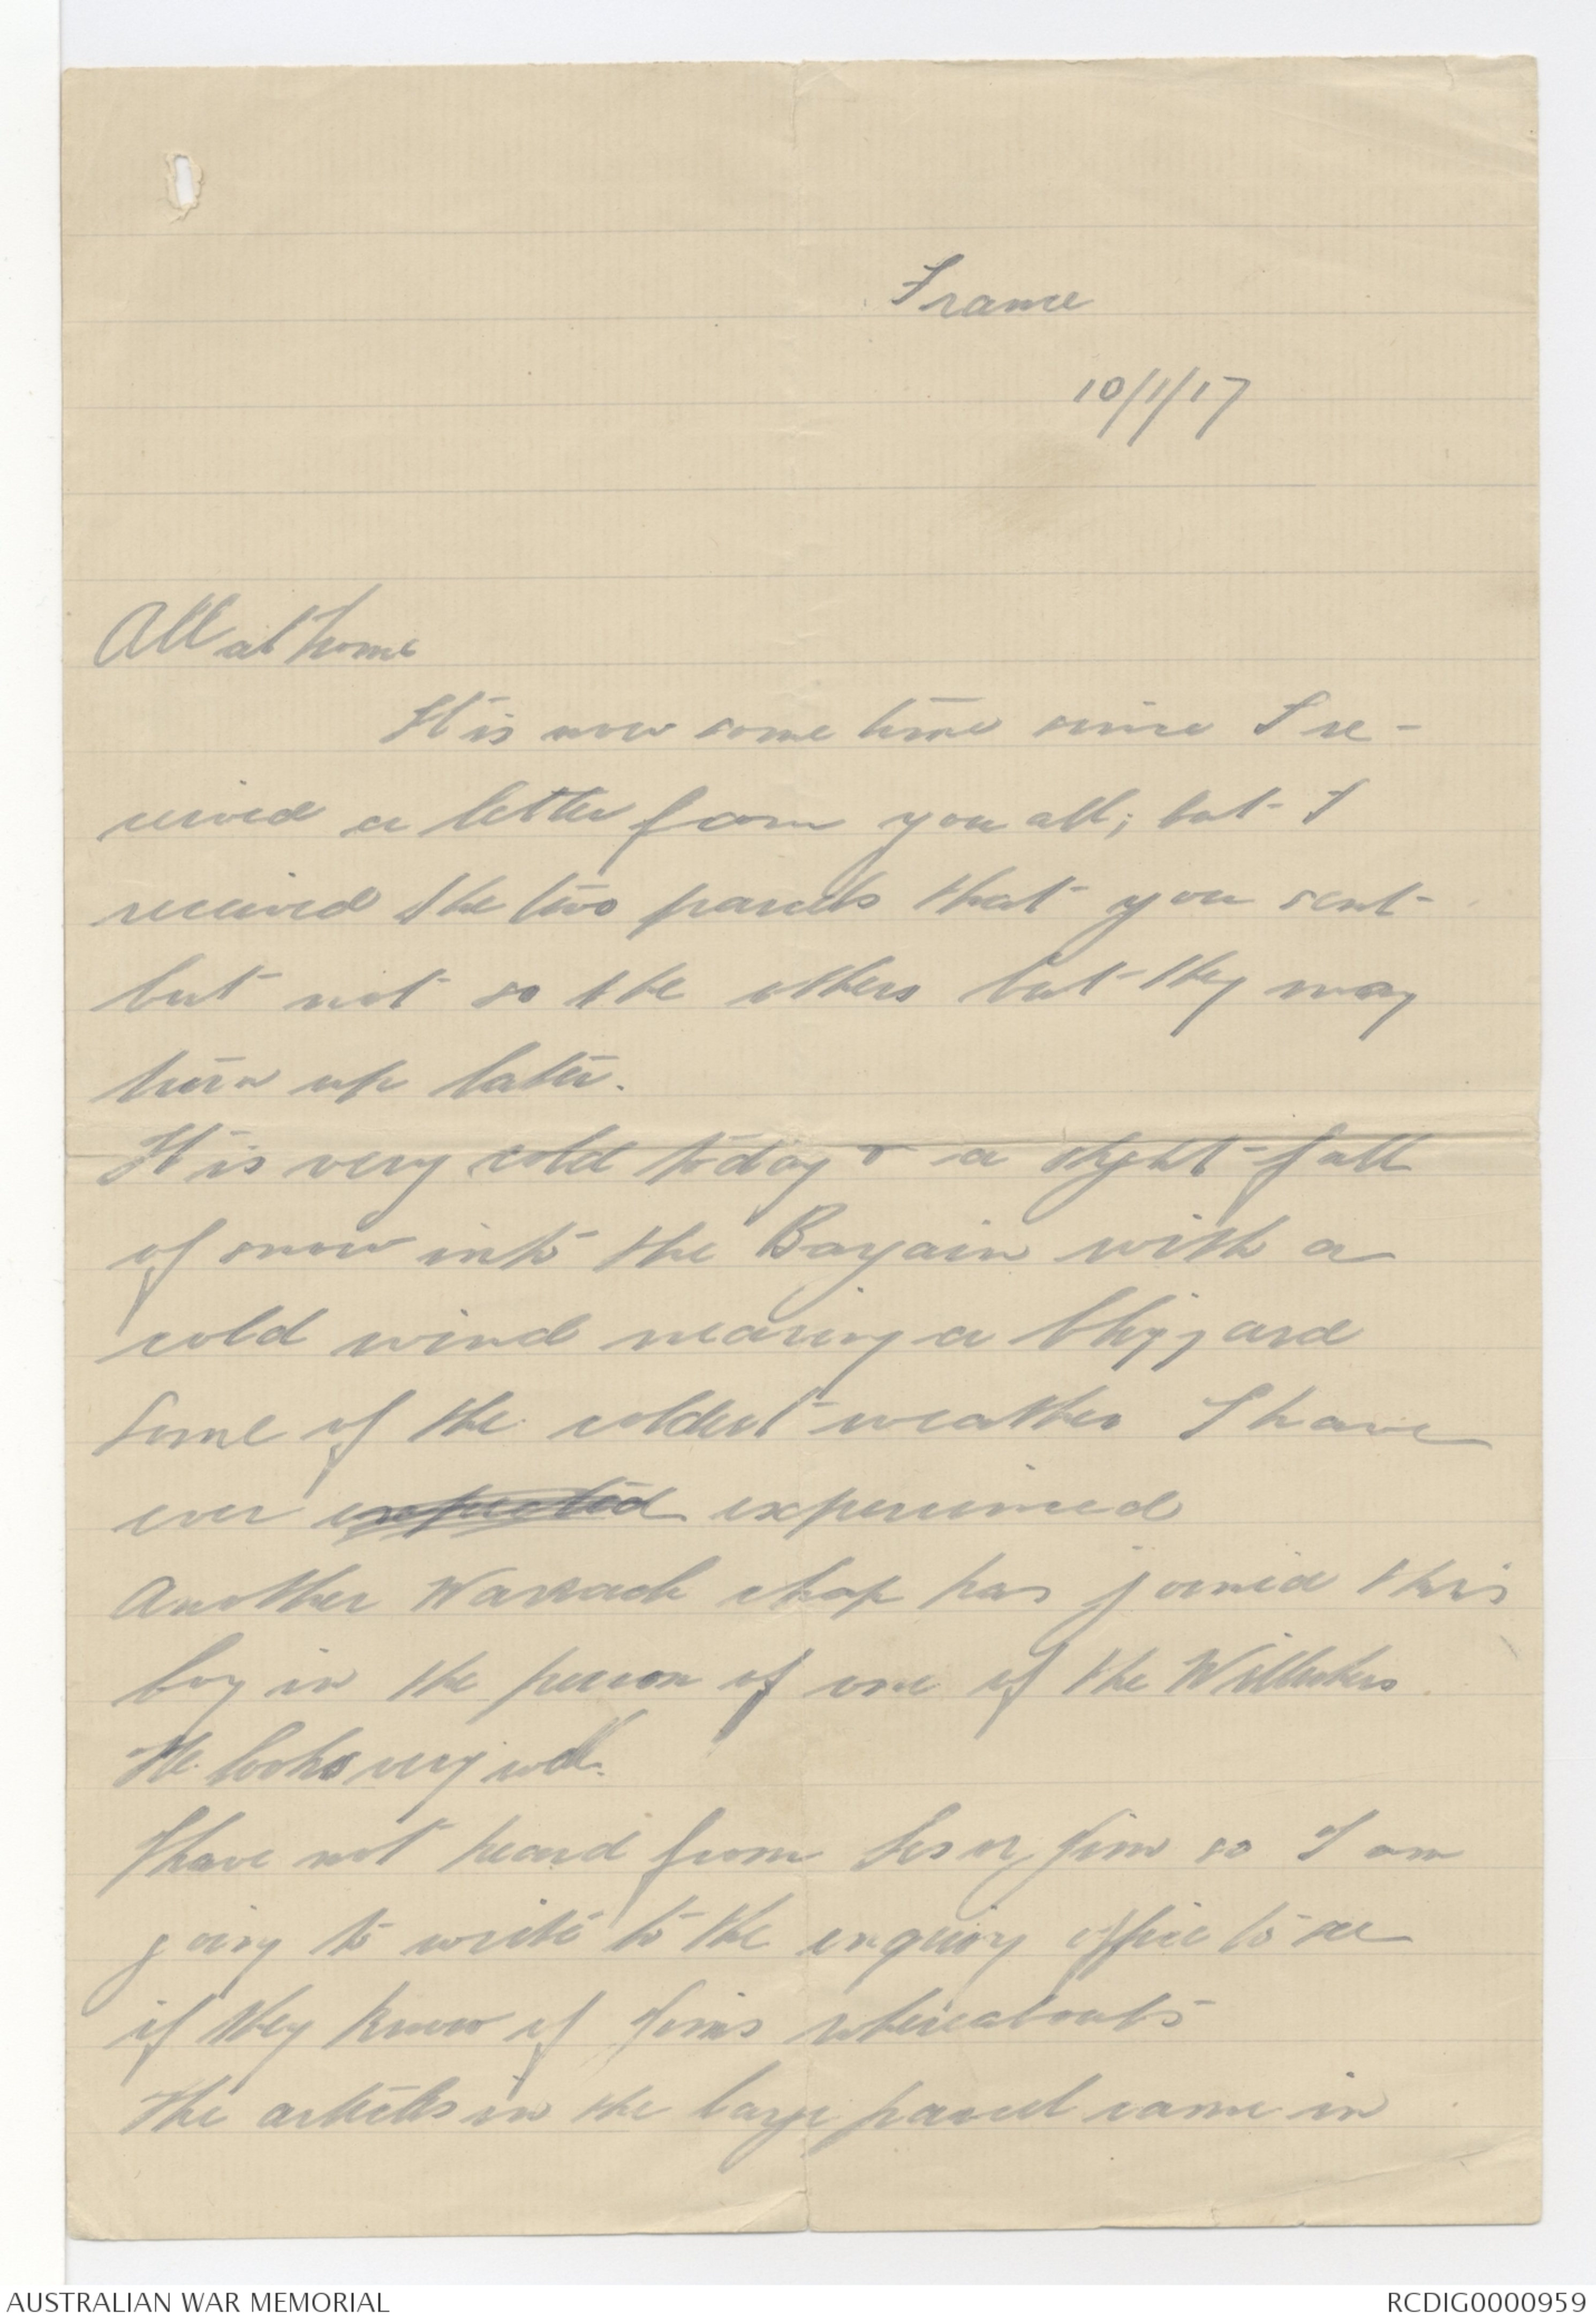 France
10/1/17
All at home
It is now some time since I re-
ceived a letter from you all; but I
received the two parcels that you sent
but not so the others but they may
turn up later.
It is very cold today & a slight fall
of snow into the Bargain with a
cold wind nearing a blizzard
Some of the coldest weather I have
ever expected experienced
Another Warrack chap has joined this
boy in the person of one of the
He looks very well.
I have not heard from Les or Jim so I am
going to write to the enquiry office to see
if they know of Jims whereabouts
The articles in the large parcel came in
AUSTRALIAN WAR MEMORIAL
RCDIG0000959